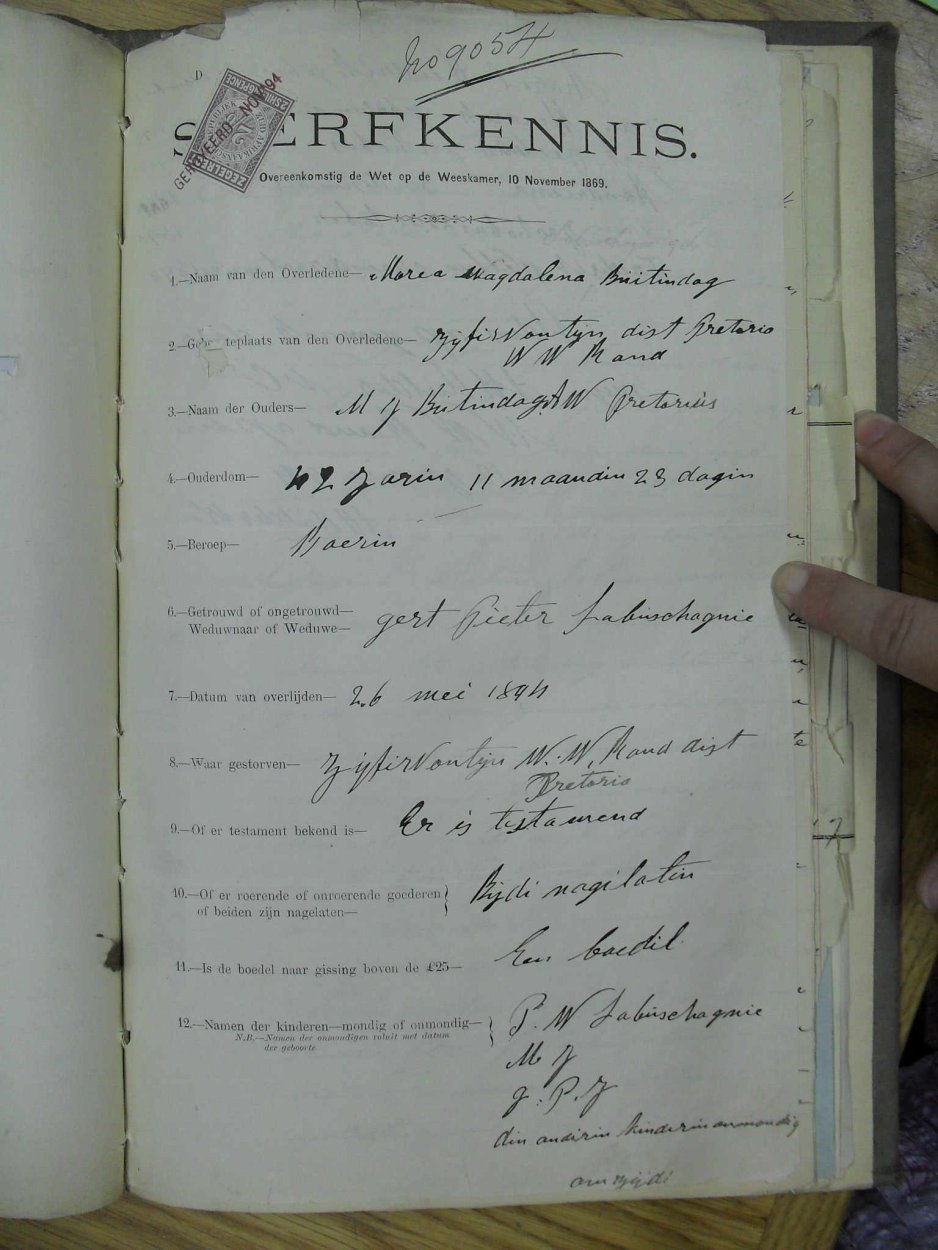 No 9054
D
GEROYEERD NOV 94
ZEGELREGT
S ERFKENNIS.
Overeenkomstig de Wet op de Weeskamer, 10 November 1869.
1.—Naam van den Overledene— Marea Magdalena Buitindag
2.—Geb teplaats van den Overledene— Zyfirvontyn dist Pretoria
W W Rand
3.—Naam der Ouders— M J Buitindag A W Pretorius
4.—Ouderdom— 42 Jarin 11 maandin 23 dagin
5.—Beroep— Boerin
6.—Getrouwd of ongetrouwd—
Weduwnaar of Weduwe— gert Pieter Labuschagnie
7.—Datum van overlijden— 26 mei 1894
8.—Waar gestorven— Zyfirvontyn W. W. Rand dist
Pretoria
9.—Of er testament bekend is— Er is testamend
10.—Of er roerende of onroerende goederen
of beiden zijn nagelaten— Bijdi nagilatin
11.—Is de boedel naar gissing boven de £25— Een boedil
12.—Namen der kinderen—mondig of onmondig— P. W Labuschagnie
N.B.—Namen der onmondigen voluit met datum
der geboorte
M J
g. P. J
din andirin kinderin onmondig